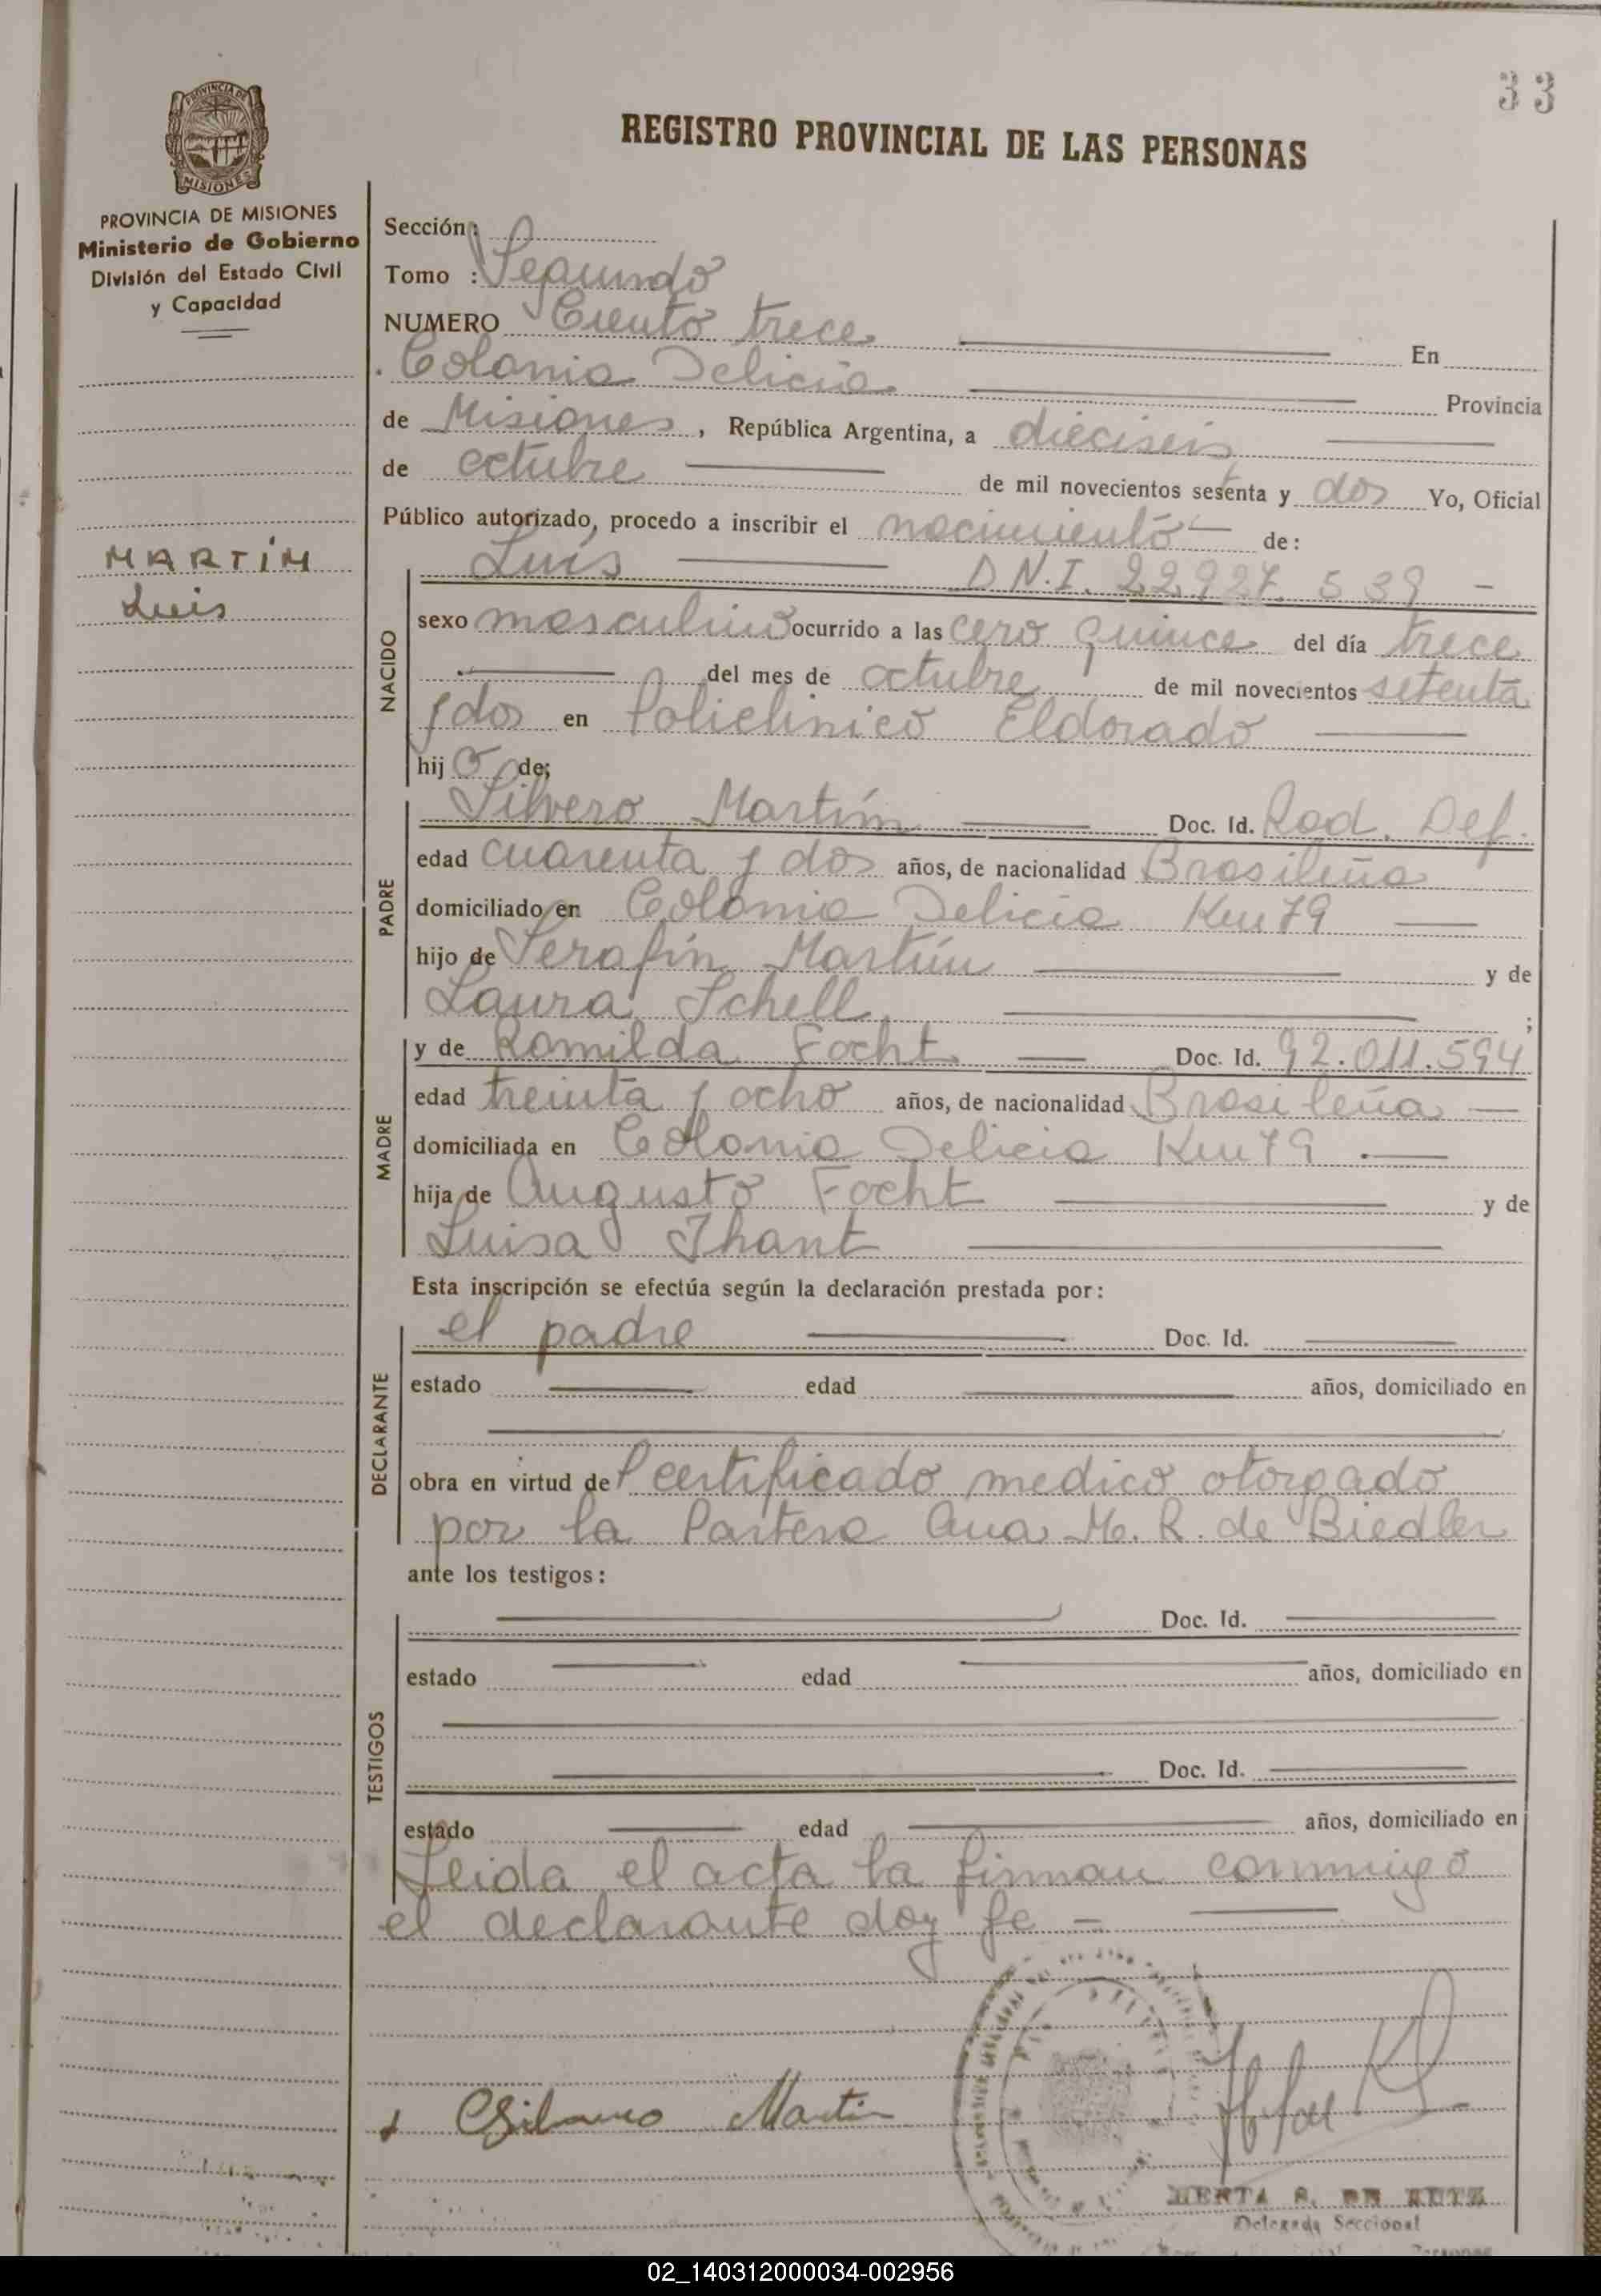 33
PROVINCIA DE
MISIONES
REGISTRO PROVINCIAL DE LAS PERSONAS
PROVINCIA DE MISIONES
Ministerio de Gobierno
División del Estado Civil
y Capacidad
MARTÍN
Luis
Sección:
Tomo : Segundo
NUMERO Ciento trece En
Colonia Delicia Provincia
de Misiones, República Argentina, a dieciseis
de octubre de mil novecientos sesenta y dos Yo, Oficial
Público autorizado, procedo a inscribir el nacimiento de:
Luis D.N.I. 22.927.539 -
NACIDO
sexo masculino ocurrido a las cero quince del día trece
del mes de octubre de mil novecientos setenta
y dos en Policlinico Eldorado
hijo de;
PADRE
Silvero Martín Doc. Id. Rad. Def.
edad cuarenta y dos años, de nacionalidad Brasileña
domiciliado en Colonia Delicia Km 79
hijo de Serafín Martín y de
Laura Schell ;
MADRE
y de Romilda Focht Doc. Id. 92.011.594
edad treinta y ocho años, de nacionalidad Brasileña
domiciliada en Colonia Delicia Km 79
hija de Augusto Focht y de
Luisa Thant
Esta inscripción se efectúa según la declaración prestada por:
DECLARANTE
el padre Doc. Id.
estado edad años, domiciliado en
obra en virtud de certificado medico otorgado
por la Partera Ana M. R. de Biedler
ante los testigos:
TESTIGOS
Doc. Id.
estado edad años, domiciliado en
Doc. Id.
estado edad años, domiciliado en
Leida el acta la firman conmigo
el declarante doy fe -
Martin
HERTA S. DE KUTZ
Delegada Seccional
02_140312000034-002956